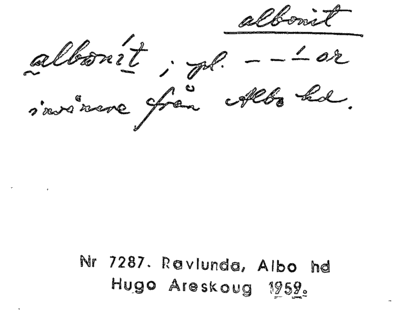 albonit
albonít ; pl. – – ́ – or
invånare från Albo hd.
Nr 7287. Ravlunda, Albo hd
Hugo Areskoug 1959.